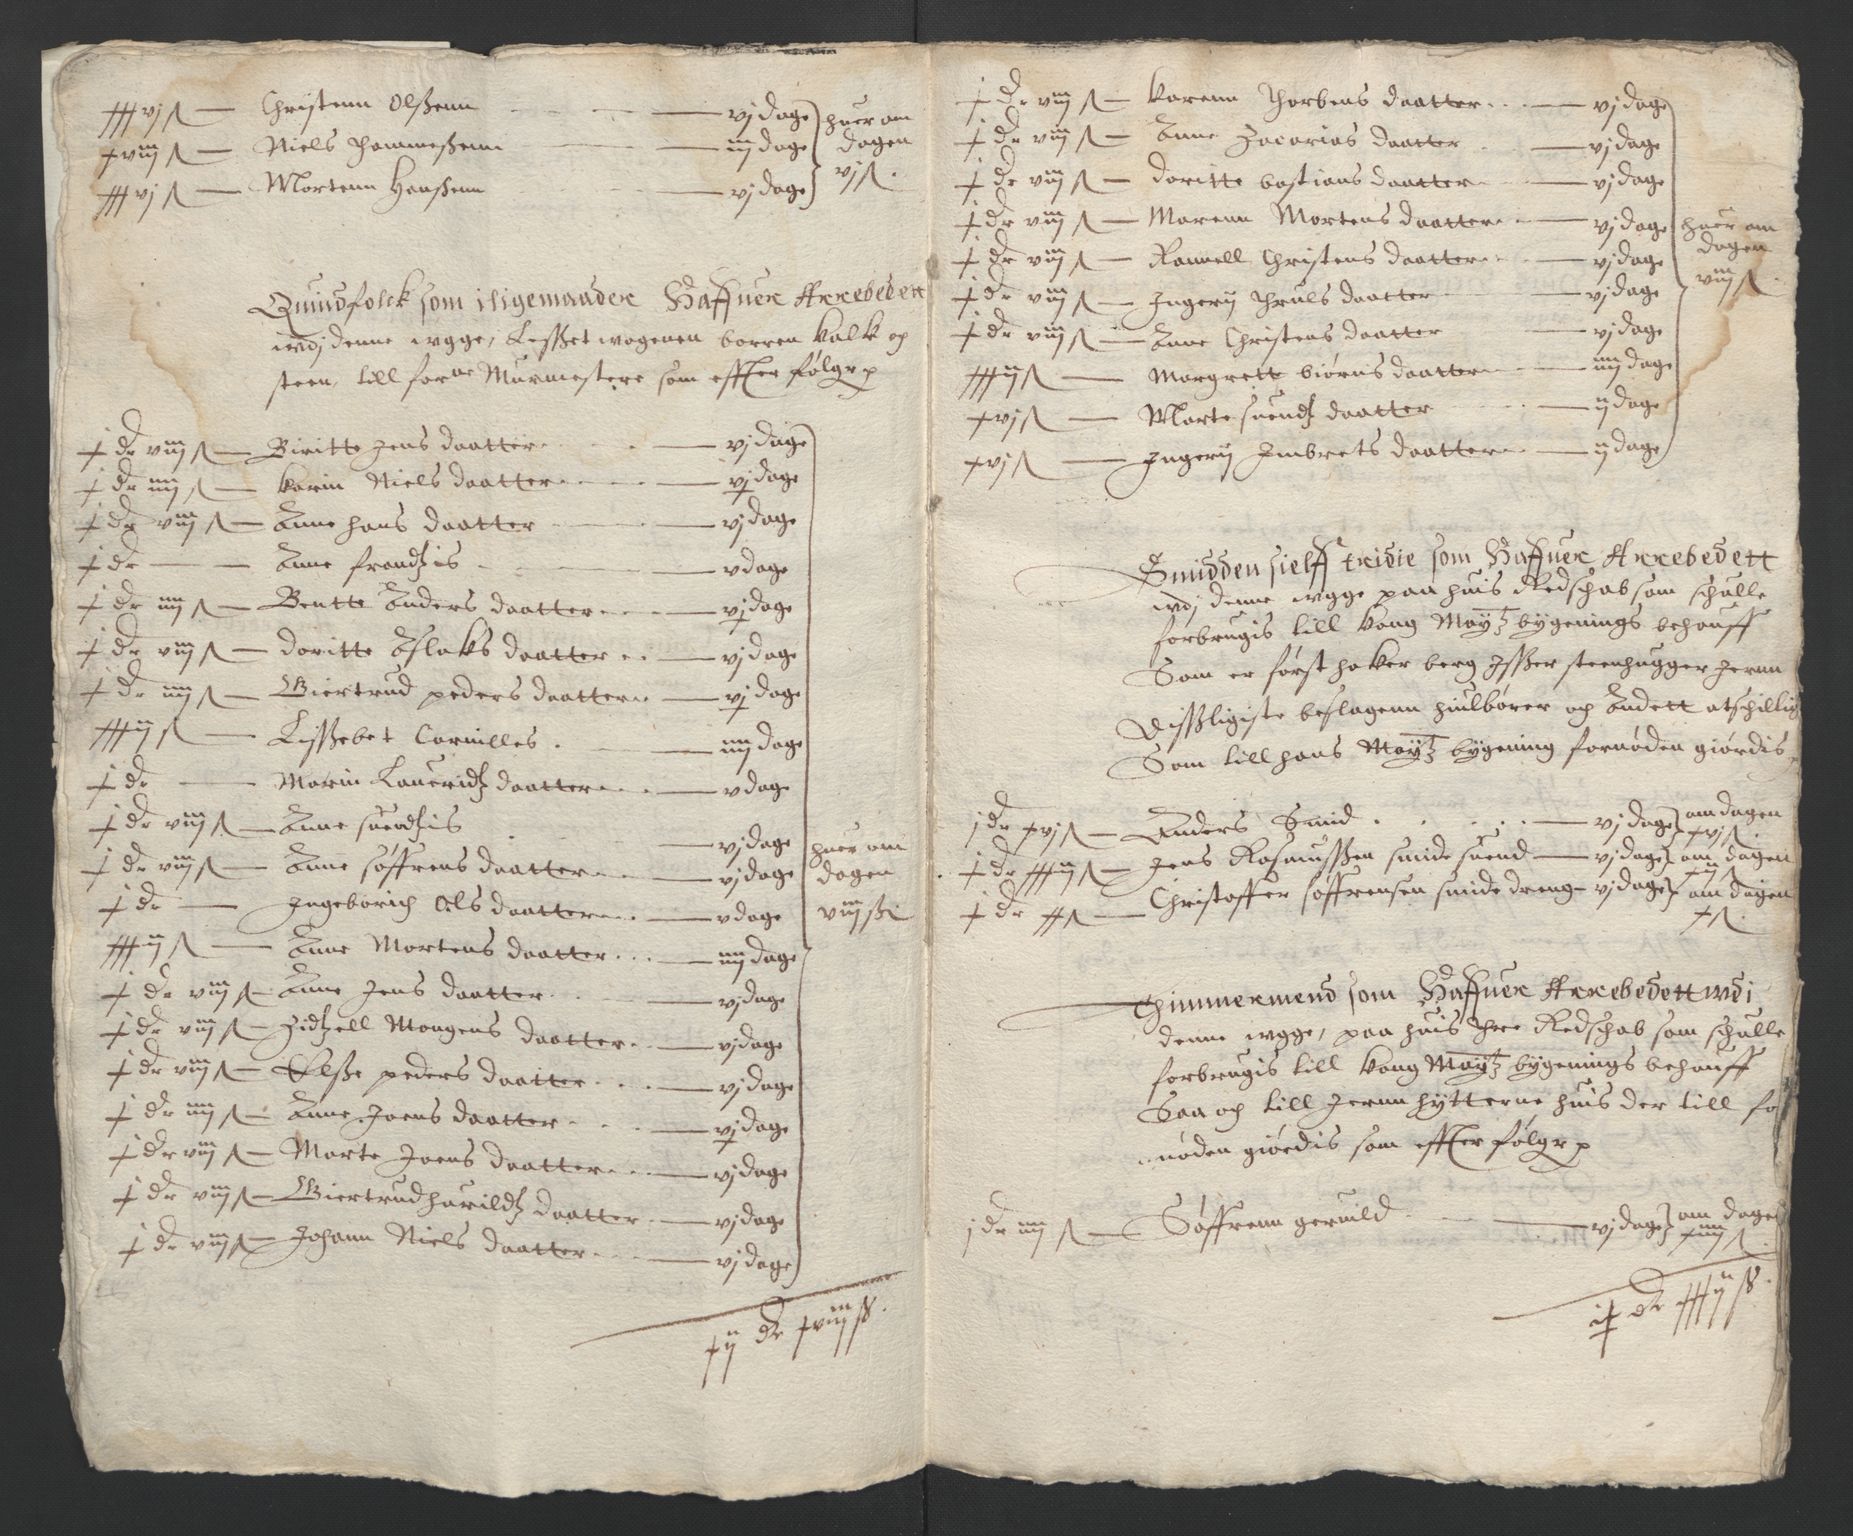 xxxvj ß — Christenn Olßenn — vj dage
xviij ß — Niels Thommeßenn — iij dage
xxxvj ß — Mortenn Hanßenn — vj dage
huer om
dagen
vj ß.
Quindfolck som iligemaader Haffuer Arrebedett
wdj denne wgge, Lesset wognen borren kalk og
steen, till forne Murmestere som effter følger
j dr viij ß — Biritte Jens daatter — vj dage
j dr iiij ß — Karin Niels daatter — vj dage
j dr viij ß — Anne Hans daatter — vj dage
j dr — Anne frandzis — v dage
j dr iiij ß — Bentte Anders daatter — vj dage
j dr viij ß — doritte Aslaks daatter — vj dage
j dr iiij ß — Giertrud peders daatter — vj dage
xxxij ß — Lissebet Cornilles — iiij dage
j dr — Marin Lauridz daatter — v dage
j dr viij ß — Anne suendzis — vj dage
j dr viij ß — Anne søffrens daatter — vj dage
j dr — Ingeborich Ols daatter — v dage
xxxij ß — Anne Mortens daatter — iiij dage
j dr viij ß — Anne Jens daatter — vj dage
j dr viij ß — Zidzell Mogens daatter — vj dage
j dr viij ß — Elße peders daatter — vj dage
j dr iiij ß — Anne Joens daatter — vj dage
j dr viij ß — Marte Joens daatter — vj dage
j dr viij ß — Giertrud harildz daatter — vj dage
j dr viij ß — Johann Niels daatter — vj dage
huer om
dagen
viij ß
xij dr xviij ß.
j dr viij ß — Karenn Thorbens daatter — vj dage
j dr viij ß — Anne Zacarias daatter — vj dage
j dr viij ß — doritte bastians daatter — vj dage
j dr viij ß — Marenn Mortens daatter — vj dage
j dr viij ß — Rannell Christens daatter — vj dage
j dr viij ß — Ingerij Thruls daatter — vj dage
j dr viij ß — Anne Christens daatter — vj dage
xxxij ß — Margrett biørns daatter — iiij dage
xvj ß — Marte suendz daatter — ij dage
xvj ß — Ingerij Imbrets daatter — ij dage
huer om
dagen
viij ß.
Smidden sielff tridie som Haffuer Arrebedett
wdj denne wgge paa huis Redschab som schulle
forbrugis till Kong Maytz bygenings behouff
Som er først haker berg Isßer steenhugger Jernn
Disßligiste beslagenn hiulbører og Andett atschillig
Som till hans Maytz bygening fornøden giørdis
j dr xvj ß — Anders Smid — vj dage } om dagen xvj ß
j dr xxxij ß — Jens Rasmussen smide suend — vj dage } om dagen xij ß
j dr xx ß — Christoffer søffrensen smide dreng — vj dage } om dagen x ß.
Thimmermend som Haffuer Arrebedett wdi
denne wgge, paa huis Thre Redschab som schulle
forbrugis till Kong Maytz bygenings behouff
Saa og till Jernn hytterne huis der till for
nøden giordis som effter følger
j dr iiij ß — Søffrenn geruild — vj dage } om dagen xiiij ß.
dr xxxij ß.